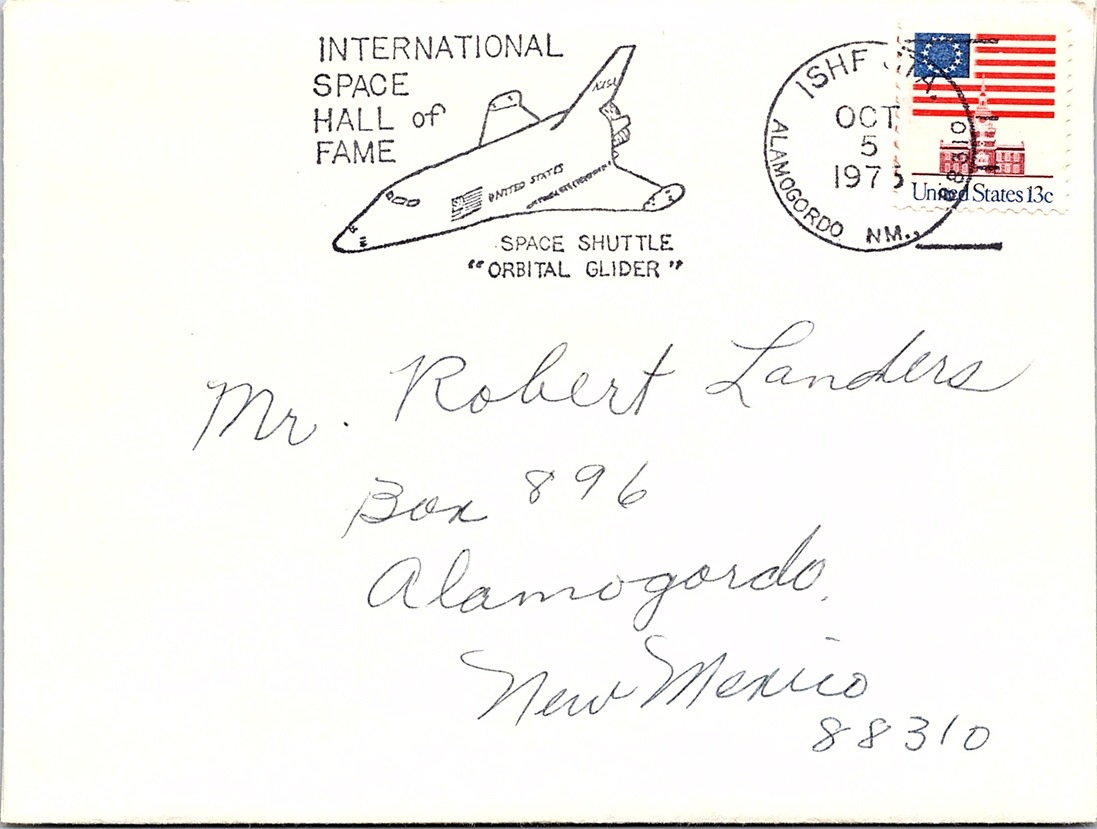 INTERNATIONAL
SPACE
HALL of
FAME
NASA
UNITED STATES
SPACE SHUTTLE
"ORBITAL GLIDER"
ISHF STA.
OCT
5
ALAMOGORDO NM.,
88310
United States 13c
Mr. Robert Landers
Box 896
Alamogordo,
New Mexico
88310